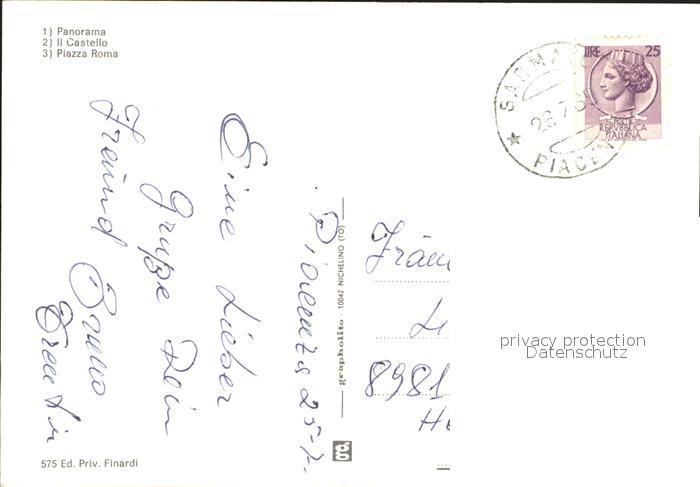 1) Panorama
2) Il Castello
3) Piazza Roma
LIRE 25
POSTE
REPVBBLICA
ITALIANA
26.7.80
PIACEN
Eine Lieber
Gruße Dein
Freund Bruno
Piacenza 25-7.
grapholito - 10042 NICHELINO (TO)
8981
privacy protection
Datenschutz
g
575 Ed. Priv. Finardi